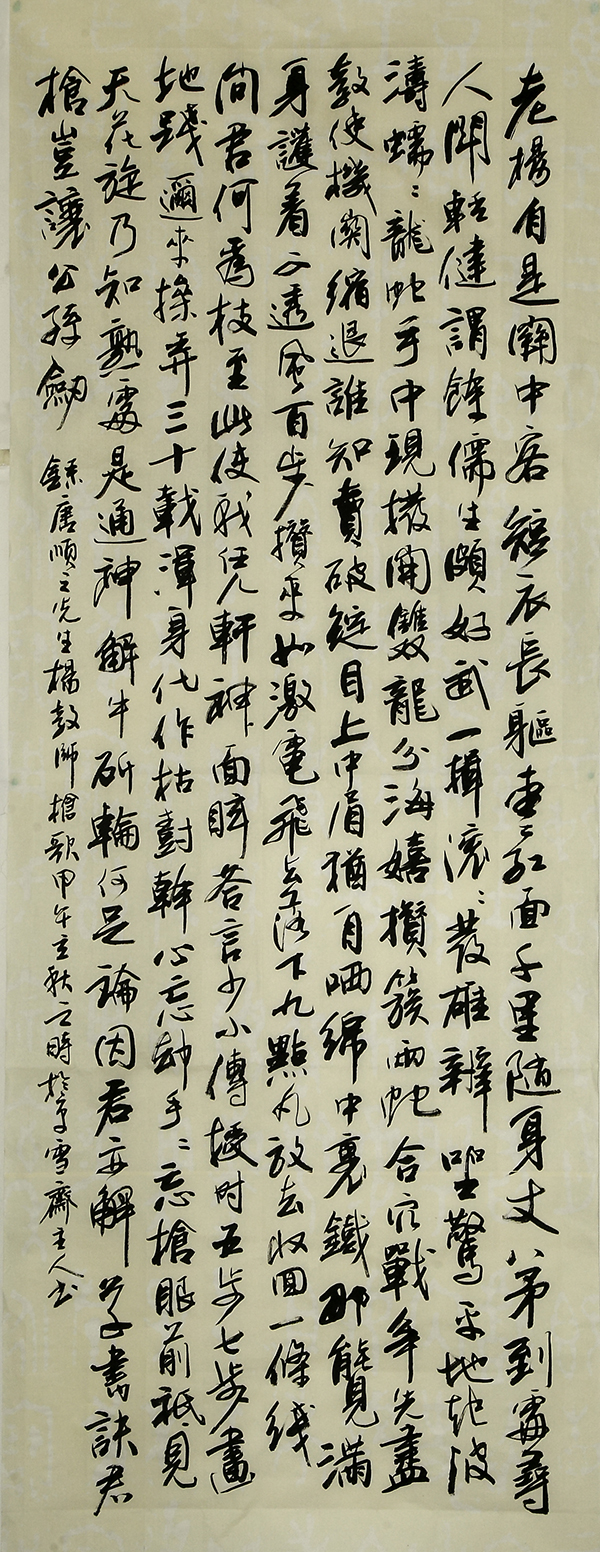 老楊自是關中客短衣長軀枣红面千里隨身丈八矛到處尋
人鬥輕健謂餘儒生頗好武一揖滚〻發雄辨坐驚平地起波
濤蠕〻龍蛇手中現撥開雙龍分海嬉攢簇兩蛇合穴戰争先盡
教使機關縮退誰知賣破綻目上中眉猶自哂綿中裹鐵那能覺滿
身護着不透風百步攢來如激電飛上落下九點丸放去收回一條綫
問君何爲技至此使我凭軒神面眩答言少小傳授时五步七步畫
地踐邇來操弄三十載渾身化作枯樹幹心忘却手〻忘槍眼前祗見
天花旋乃知熟處是通神解牛斫輪何足論因君亦解草書訣君
槍豈讓公孫劍 録唐順之先生楊教師槍歌甲午立秋之時於守雪齋主人书